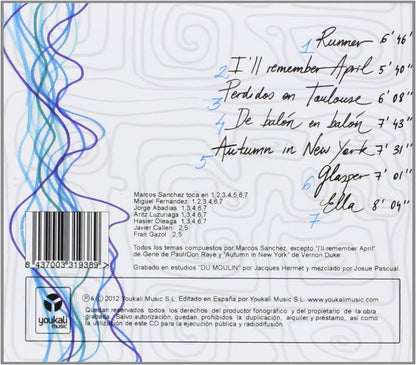 1 Runner 6' 46"
2 I'll remember April 5' 40"
3 Perdidos en Toulouse 6' 08"
4 De balón en balón 7' 43"
5 Autumn in New York 7' 31"
6 Glasper 7' 01"
7 Ella 8' 04"
Marcos Sanchez toca en 1,2,3,4,5,6,7
Miguel Fernandez: 1,2,3,4,6,7
Jorge Abadias: 1,3,4,6,7
Aritz Luzuriaga: 1,3,4,6,7
Hasier Oleaga: 1,3,4,6,7
Javier Callen: 2,5
Fran Gazol: 2,5
Todos los temas compuestos por Marcos Sanchez, excepto "I'll remember April"
de Gene de Paul/Don Raye y "Autumn in New York" de Vernon Duke.
Grabado en estudios "DU MOULIN" por Jacques Hermet y mezclado por Josue Pascual.
8 437003 319389 >
youkali
music
℗ & © 2012 Youkali Music S.L. Editado en España por Youkali Music S.L. www.youkalimusic.com
Quedan reservados todos los derechos del productor fonográfico y del propietario de la obra
grabada. Salvo autorización, quedan prohibidos la duplicación, alquiler y préstamo, así como
la utilización de este CD para la ejecución pública y radiodifusión.